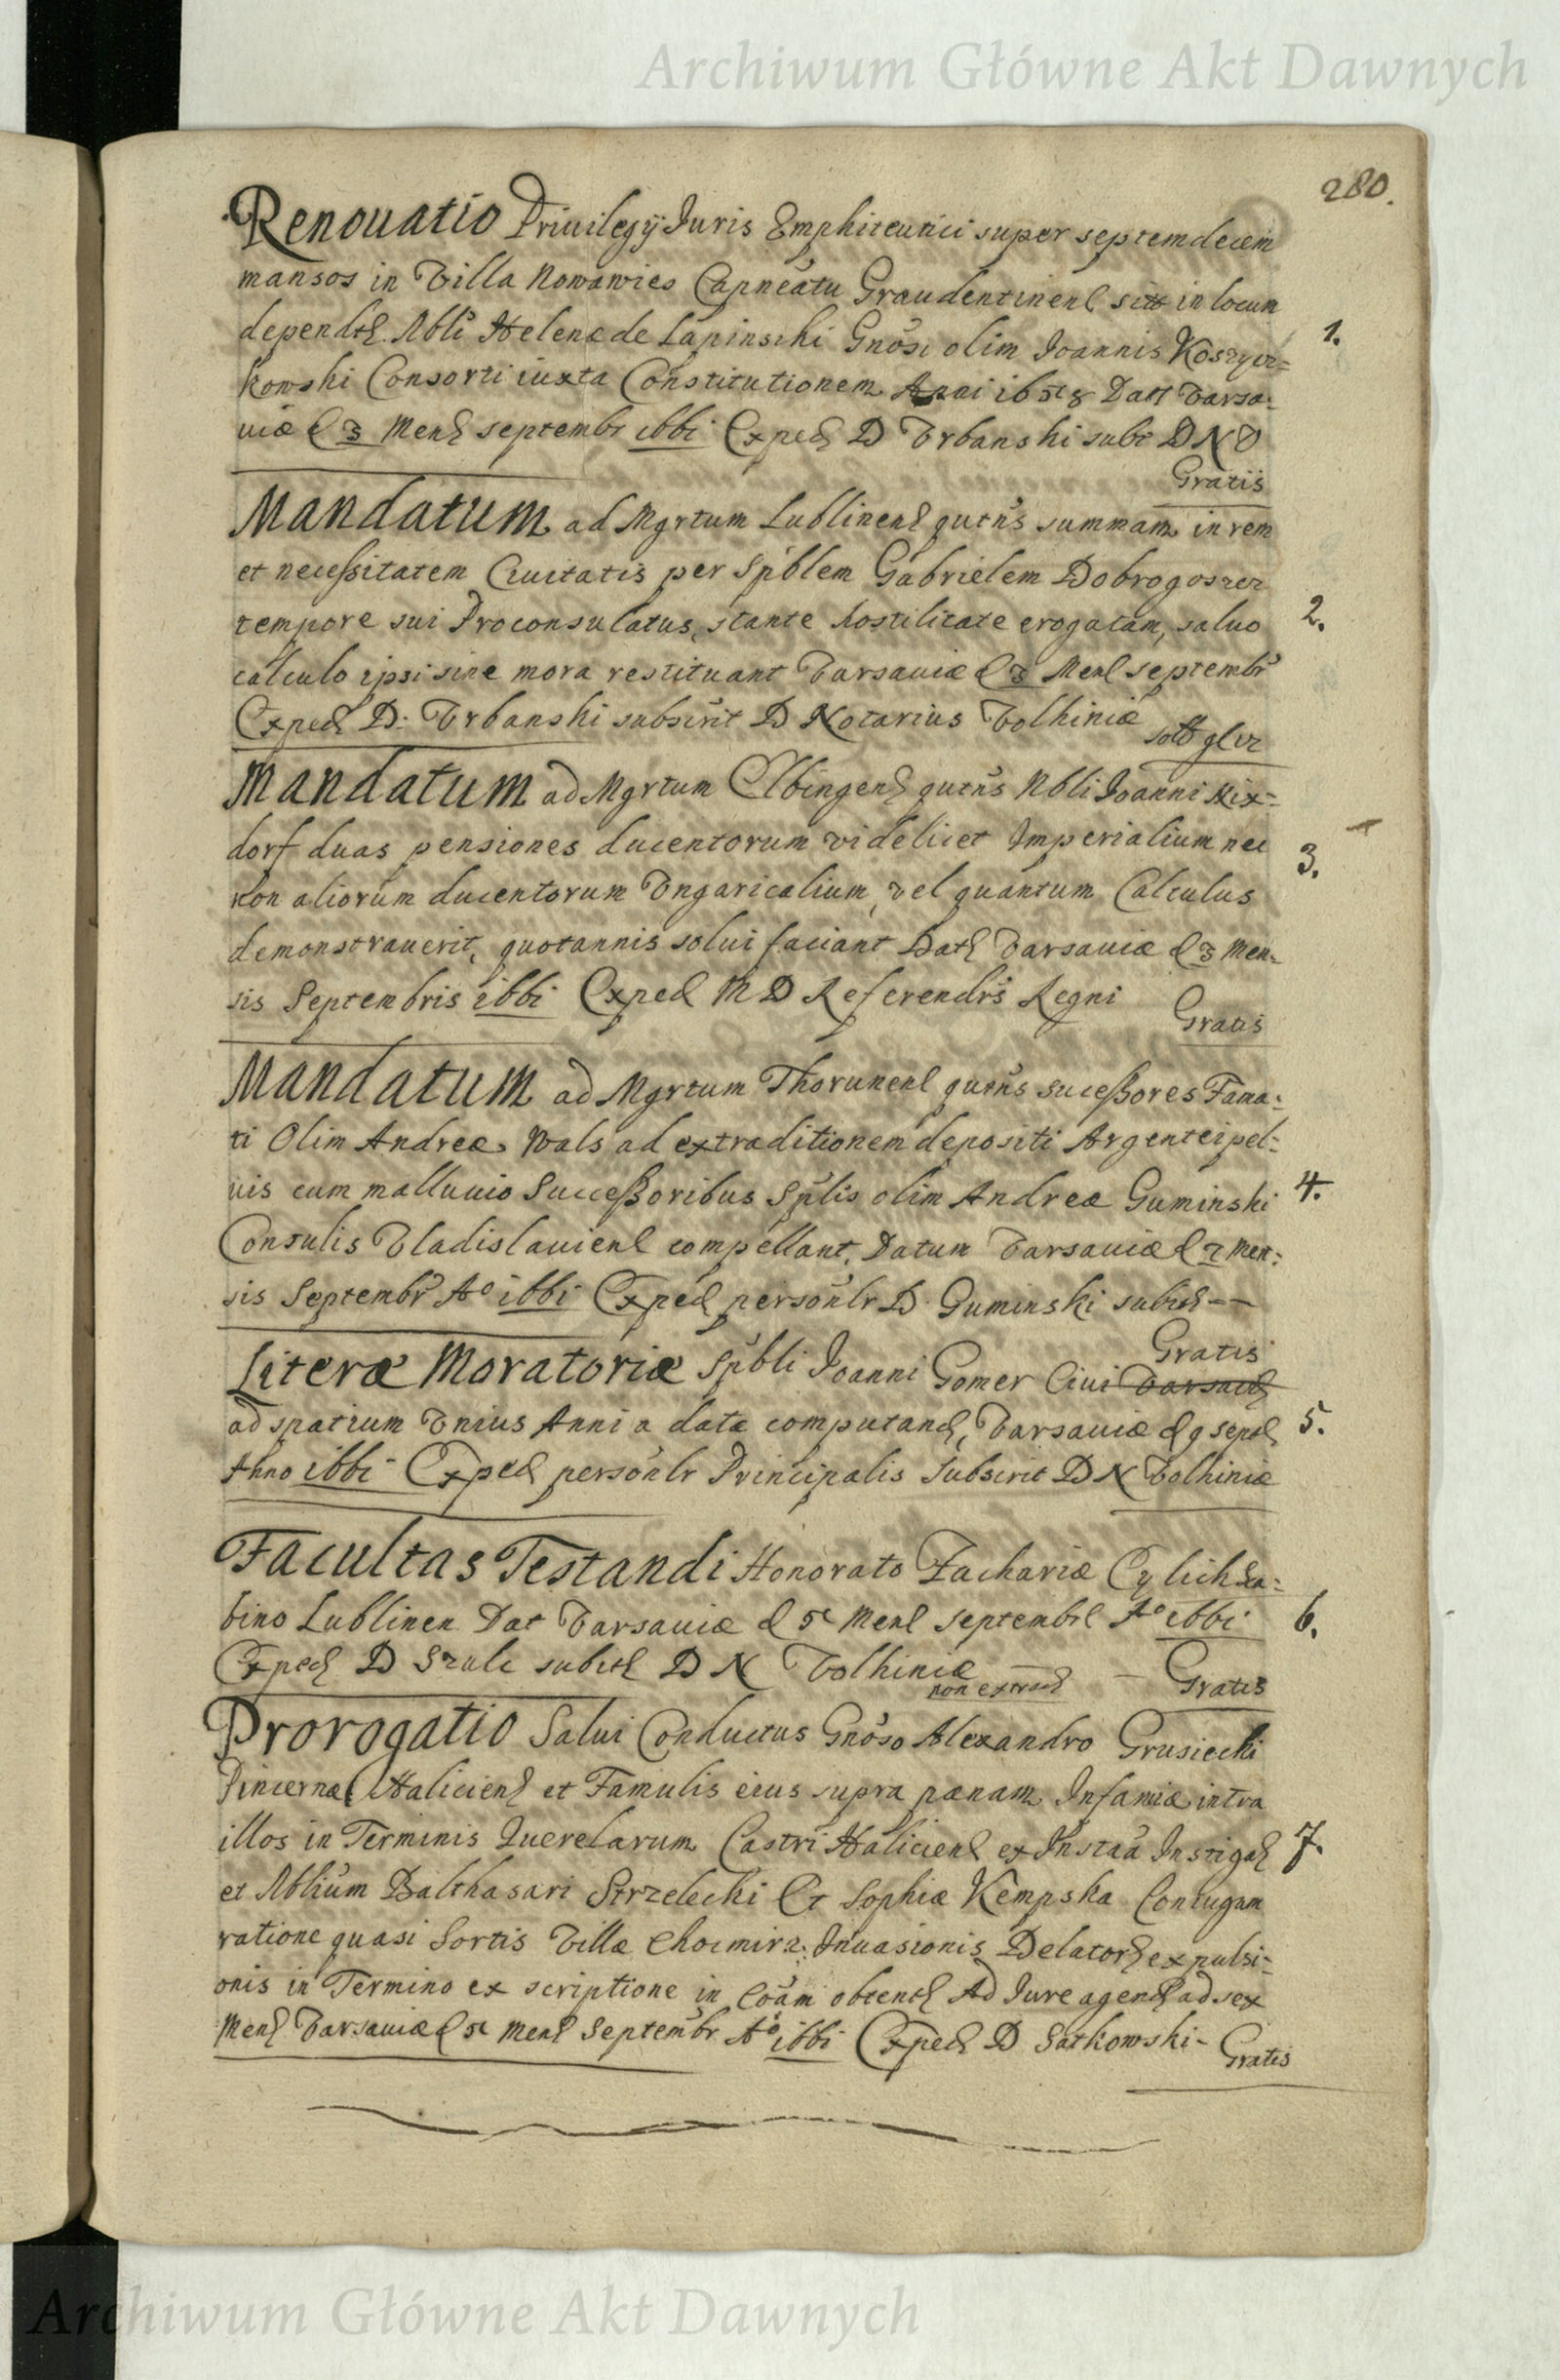 Archiwum Główne Akt Dawnych
280.
Renouatio Priuilegij Iuris Emphiteutici super septemdecem
mansos in Villa Nowawies Capneatu Graudentinens in locum
Nbli Helenæ de Lapinski Gnosi olim Ioannis Koszycz=
1.
kowski Consorti iuxta Constitutionem Anni Varsa=
uiæ d 3 Mens septembr 1661 Exped D Vrbanski DNV
Gratis
Mandatum ad Mgrtum Lublinens qutns summam in rem
et necessitatem Ciuitatis per Spblem Gabrielem Dobrogoszcz
tempore sui Proconsulatus, stante hostilitate erogatam, saluo
2.
calculo ipsi sine mora restituant Varsauiæ d 3 Mens septembr
Exped D. Vrbanski subscrit D Notarius Volhiniæ
Mandatum ad Mgrtum Elbingens qutns Nbli Ioanni Nix=
dorf duas pensiones ducentorum videlicet Imperialium nec
3.
non aliorum ducentorum Vngaricalium, vel quantum Calculus
demonstrauerit, quotannis solui faciant Dat Varsauiæ d 3 Men=
sis Septembris 1661 Exped M D Referendrs Regni
Gratis
Mandatum ad Mgrtum Thorunens qutns sucessores Fama=
ti Olim Andreæ Wals ad extraditionem depositi Argentei pel=
uis cum malluuio Successoribus Splis olim Andreæ Guminski
4.
Consulis Vladislauiens compellant, Datum Varsauiæ d 7 Men=
sis Septembr Ao 1661 Exped personlr D. Guminski
Gratis
Literæ Moratoriæ Spbli Ioanni Gomer Ciui Varsauie
ad spatium Vnius Anni a data computand, Varsauiæ d 9 Sept
5.
Anno 1661 Exped personlr Principalis Subscrit D N Volhiniæ
Facultas Testandi Honorato Zachariæ
Lublinen Dat Varsauiæ d 5 Mens septembr Ao 1661
6.
Exped D Szulc D N Volhiniæ
Gratis
Prorogatio Salui Conductus Gnoso Alexandro Grusiecki
Pincernæ Haliciens et Famulis eius supra pænam Infamiæ intra
illos in Terminis Querelarum Castri Haliciens ex Insta Instigat
7.
et Nblium Balthasari Strzelecki Et Sophiæ Kempska Coniugum
ratione quasi Sortis Villæ Inuasionis Delator expulsi=
onis in Termino ex scriptione in Coam obtent Ad Iure agend ad sex
Mens Varsauiæ d 5 Mens Septembr Ao 1661 Exped D Satkowski -
Gratis
Archiwum Główne Akt Dawnych